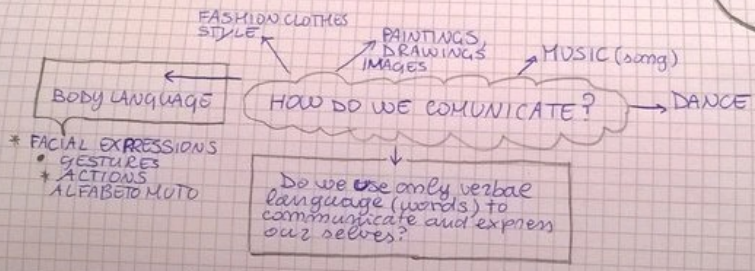 FASHION CLOTHES
STYLE
PAINTINGS,
DRAWINGS
IMAGES
MUSIC (song)
BODY LANGUAGE
HOW DO WE COMUNICATE?
DANCE
* FACIAL EXPRESSIONS
• GESTURES
* ACTIONS
ALFABETO MUTO
Do we use only verbal
language (words) to
communicate and express
our selves?